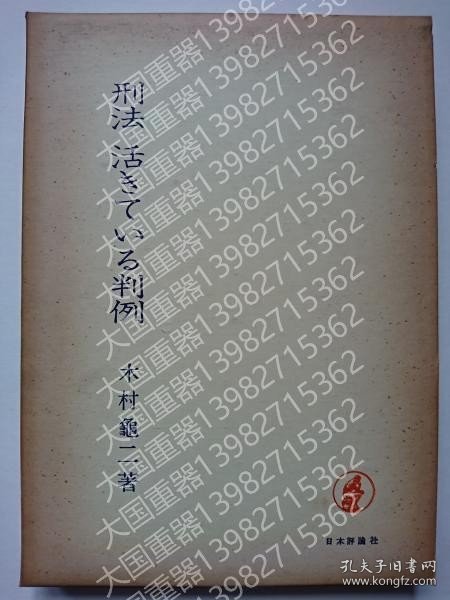 刑法 活きている判例
木村龜二著
日本評論社
大国重器13982715362
大国重器13982715362
大国重器13982715362
大国重器13982715362
大国重器13982715362
大国重器13982715362
大国重器13982715362
孔夫子旧书网
www.kongfz.com